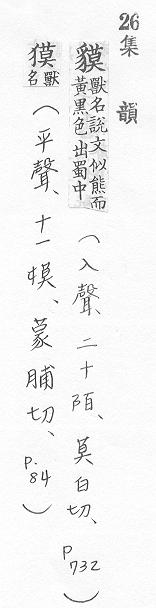 26集韻
貘獸名說文似熊而黃黑色出蜀中（入聲、二十陌、莫白切、P732）
獏獸名（平聲、十一模、蒙脯切、P.84）